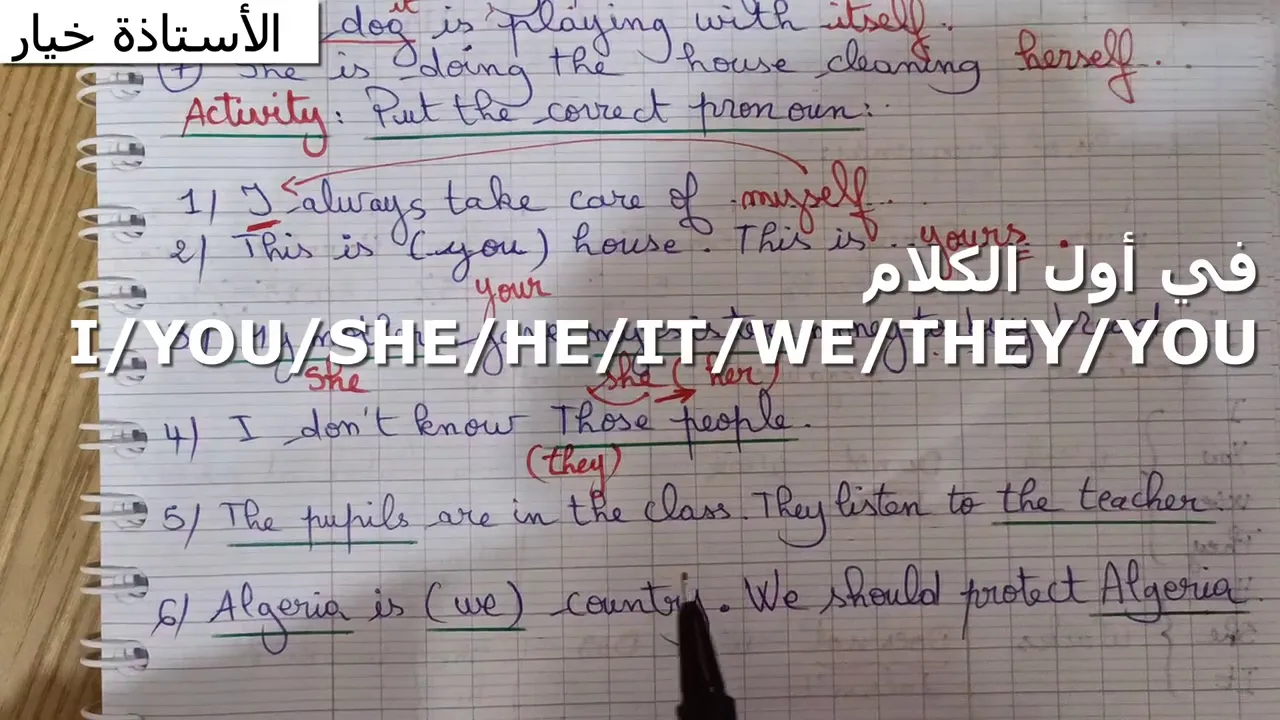 الأستاذة خيار
it
dog is playing with itself.
7 She is doing the house cleaning herself.
Activity: Put the correct pronoun:
1) I always take care of myself
2) This is (you) house. This is yours
your
في أول الكلام
I/YOU/SHE/HE/IT/WE/THEY/YOU
she she (her)
4) I don't know Those people.
(they)
5) The pupils are in the class. They listen to the teacher.
6) Algeria is (we) country. We should protect Algeria.